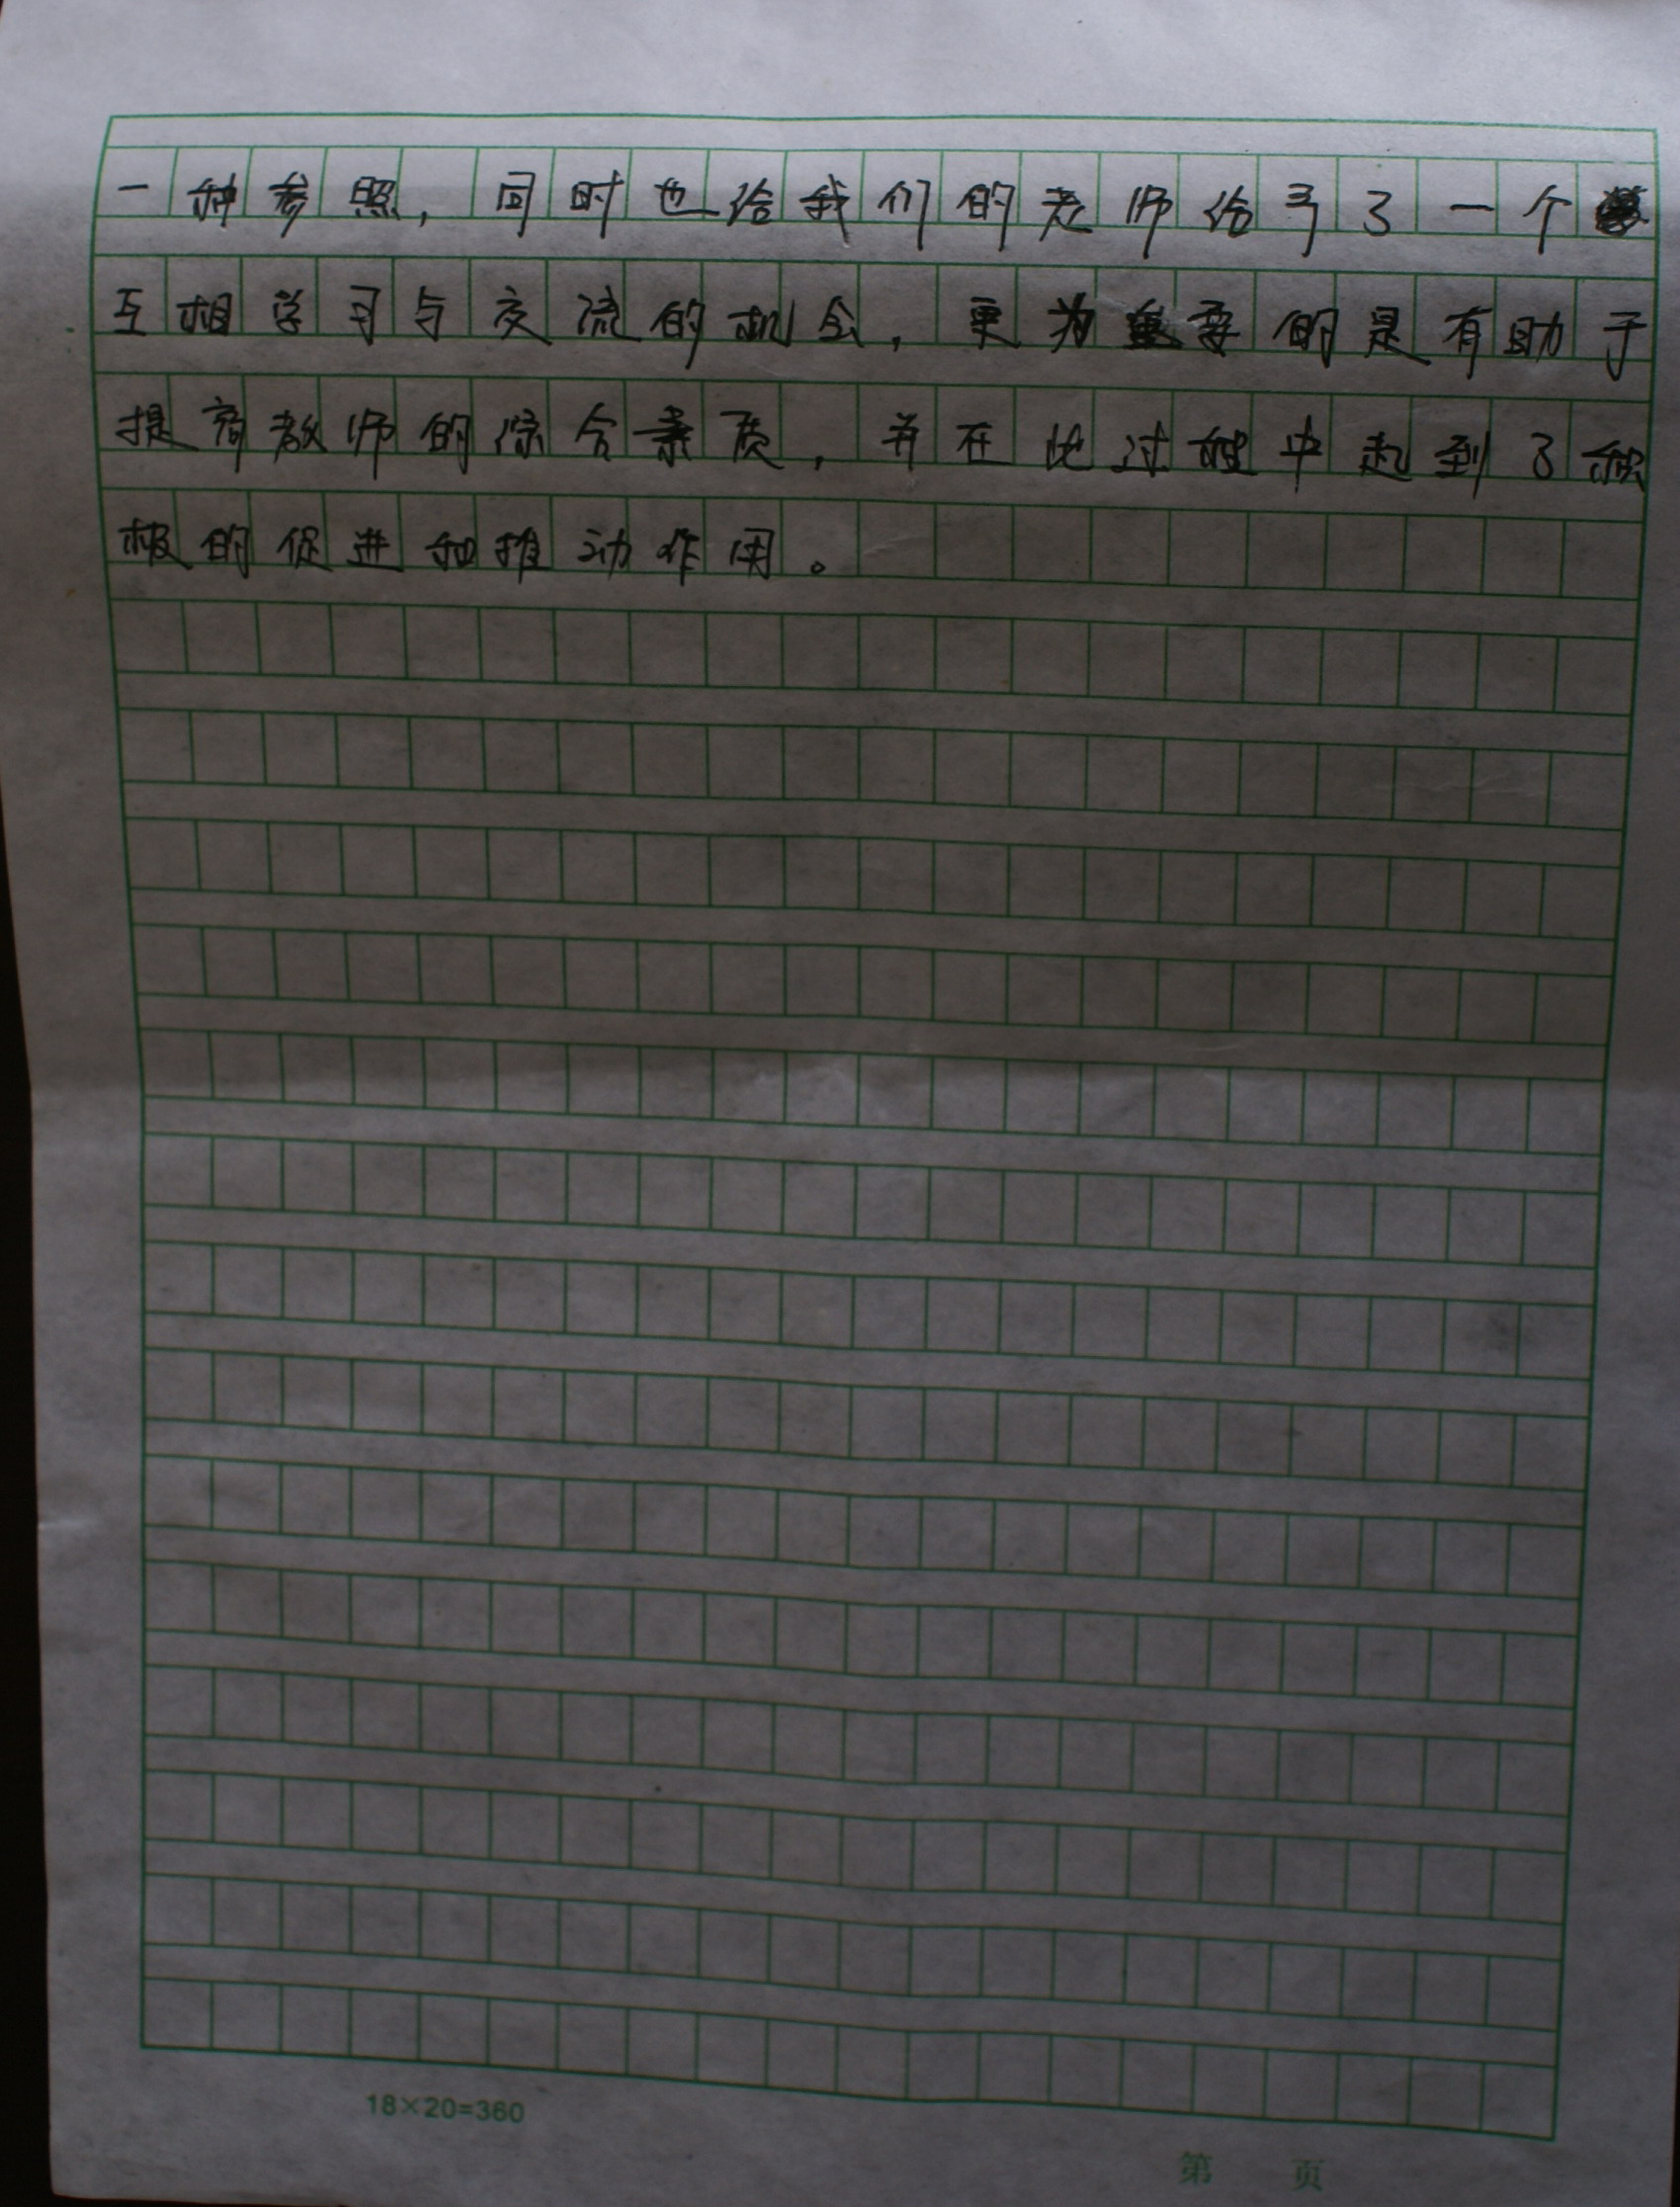 一种参照，同时也给我们的老师给予了一个
互相学习与交流的机会，更为重要的是有助于
提高教师的综合素质，并在此过程中起到了积
极的促进和推动作用。
18×20=360
第 页